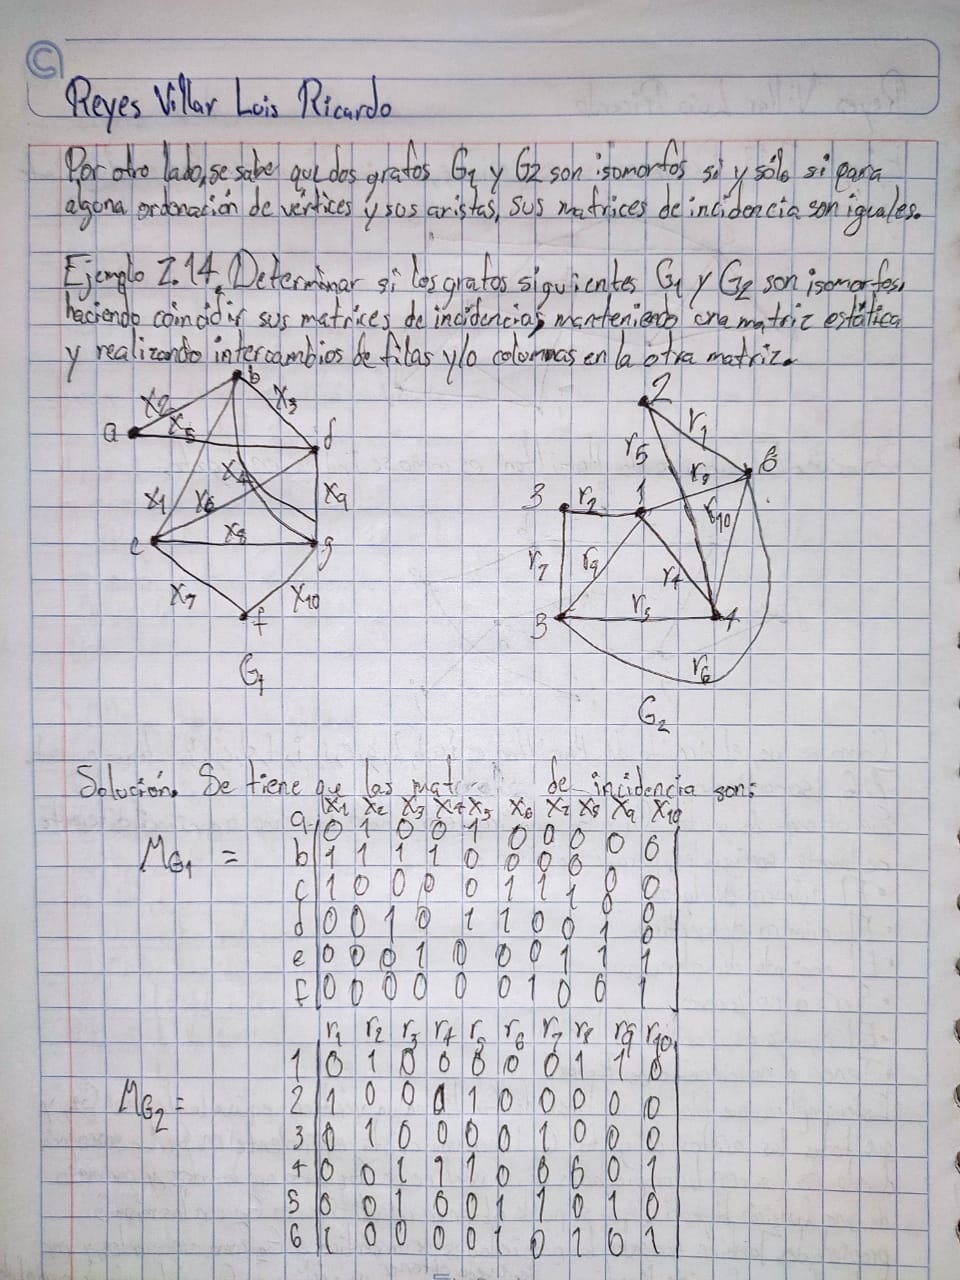 Reyes Villar Luis Ricardo
Por otro lado, se sabe que dos grafos G1 y G2 son isomorfos si y sólo si para
alguna ordenación de vértices y sus aristas, sus matrices de incidencia son iguales.
Ejemplo 2.14. Determinar si los grafos siguientes G1 y G2 son isomorfos,
haciendo coincidir sus matrices de incidencias, manteniendo una matriz estática
y realizando intercambios de filas y/o columnas en la otra matriz.
b
x2
x3
a
x5
d
x4
x1
x6
x9
x8
e
g
x7
x10
f
G1
2
r1
r5
6
r8
3
r2
1
r10
r7
r9
r4
3
r3
4
r6
G2
Solución. Se tiene que las mat de incidencia son:
x1 x2 x3 x4 x5 x6 x7 x8 x9 x10
a 0 1 0 0 1 0 0 0 0 0
MG1 = b 1 1 1 1 0 0 0 0
c 1 0 0 0 0 1 1 1 0 0
d 0 0 1 0 1 1 0 0 1 0
e 0 0 0 1 0 0 0 1 1 1
f 0 0 0 0 0 0 1 0 0 1
r1 r2 r3 r4 r5 r6 r7 r8 r9 r10
1 0 1 0 0 0 0 0 1 1 0
MG2 = 2 1 0 0 1 0 0 0 0 0
3 0 1 0 0 0 0 1 0 0 0
4 0 0 1 1 1 0 0 0 0 1
5 0 0 1 0 0 1 1 0 1 0
6 1 0 0 0 0 1 0 1 0 1